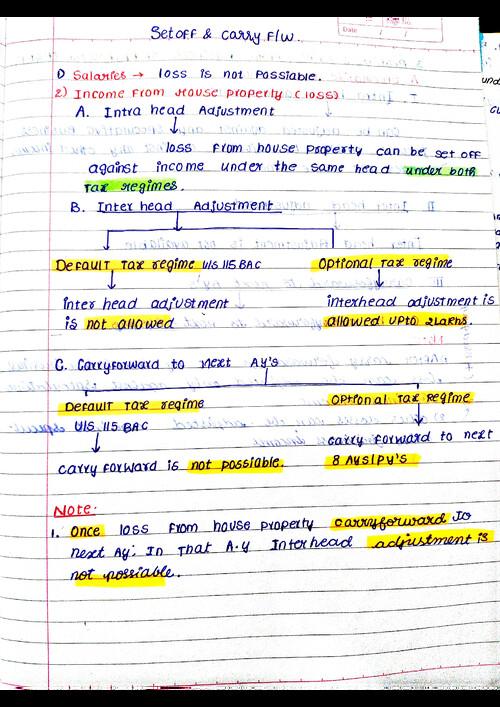 Setoff & Carry F/W.
Date / /
1) Salaries → loss is not Possiable.
2) Income From House Property (loss)
A. Intra head Adjustment
loss From house Property can be set off
against income under the same head under both
Tax regimes.
B. Inter head Adjustment
Default Tax regime U/S 115 BAC
Optional Tax regime
inter head adjustment
is not allowed
interhead adjustment is
allowed upto 2 Lakhs.
C. Carryforward to Next AY's
Default Tax regime
U/S 115 BAC
Optional Tax Regime
carry forward is not possiable.
carry forward to next
8 AYs/PY's
Note:
1. Once loss from house property carryforward To
next Ay: In That A.y Interhead adjustment is
not possiable.